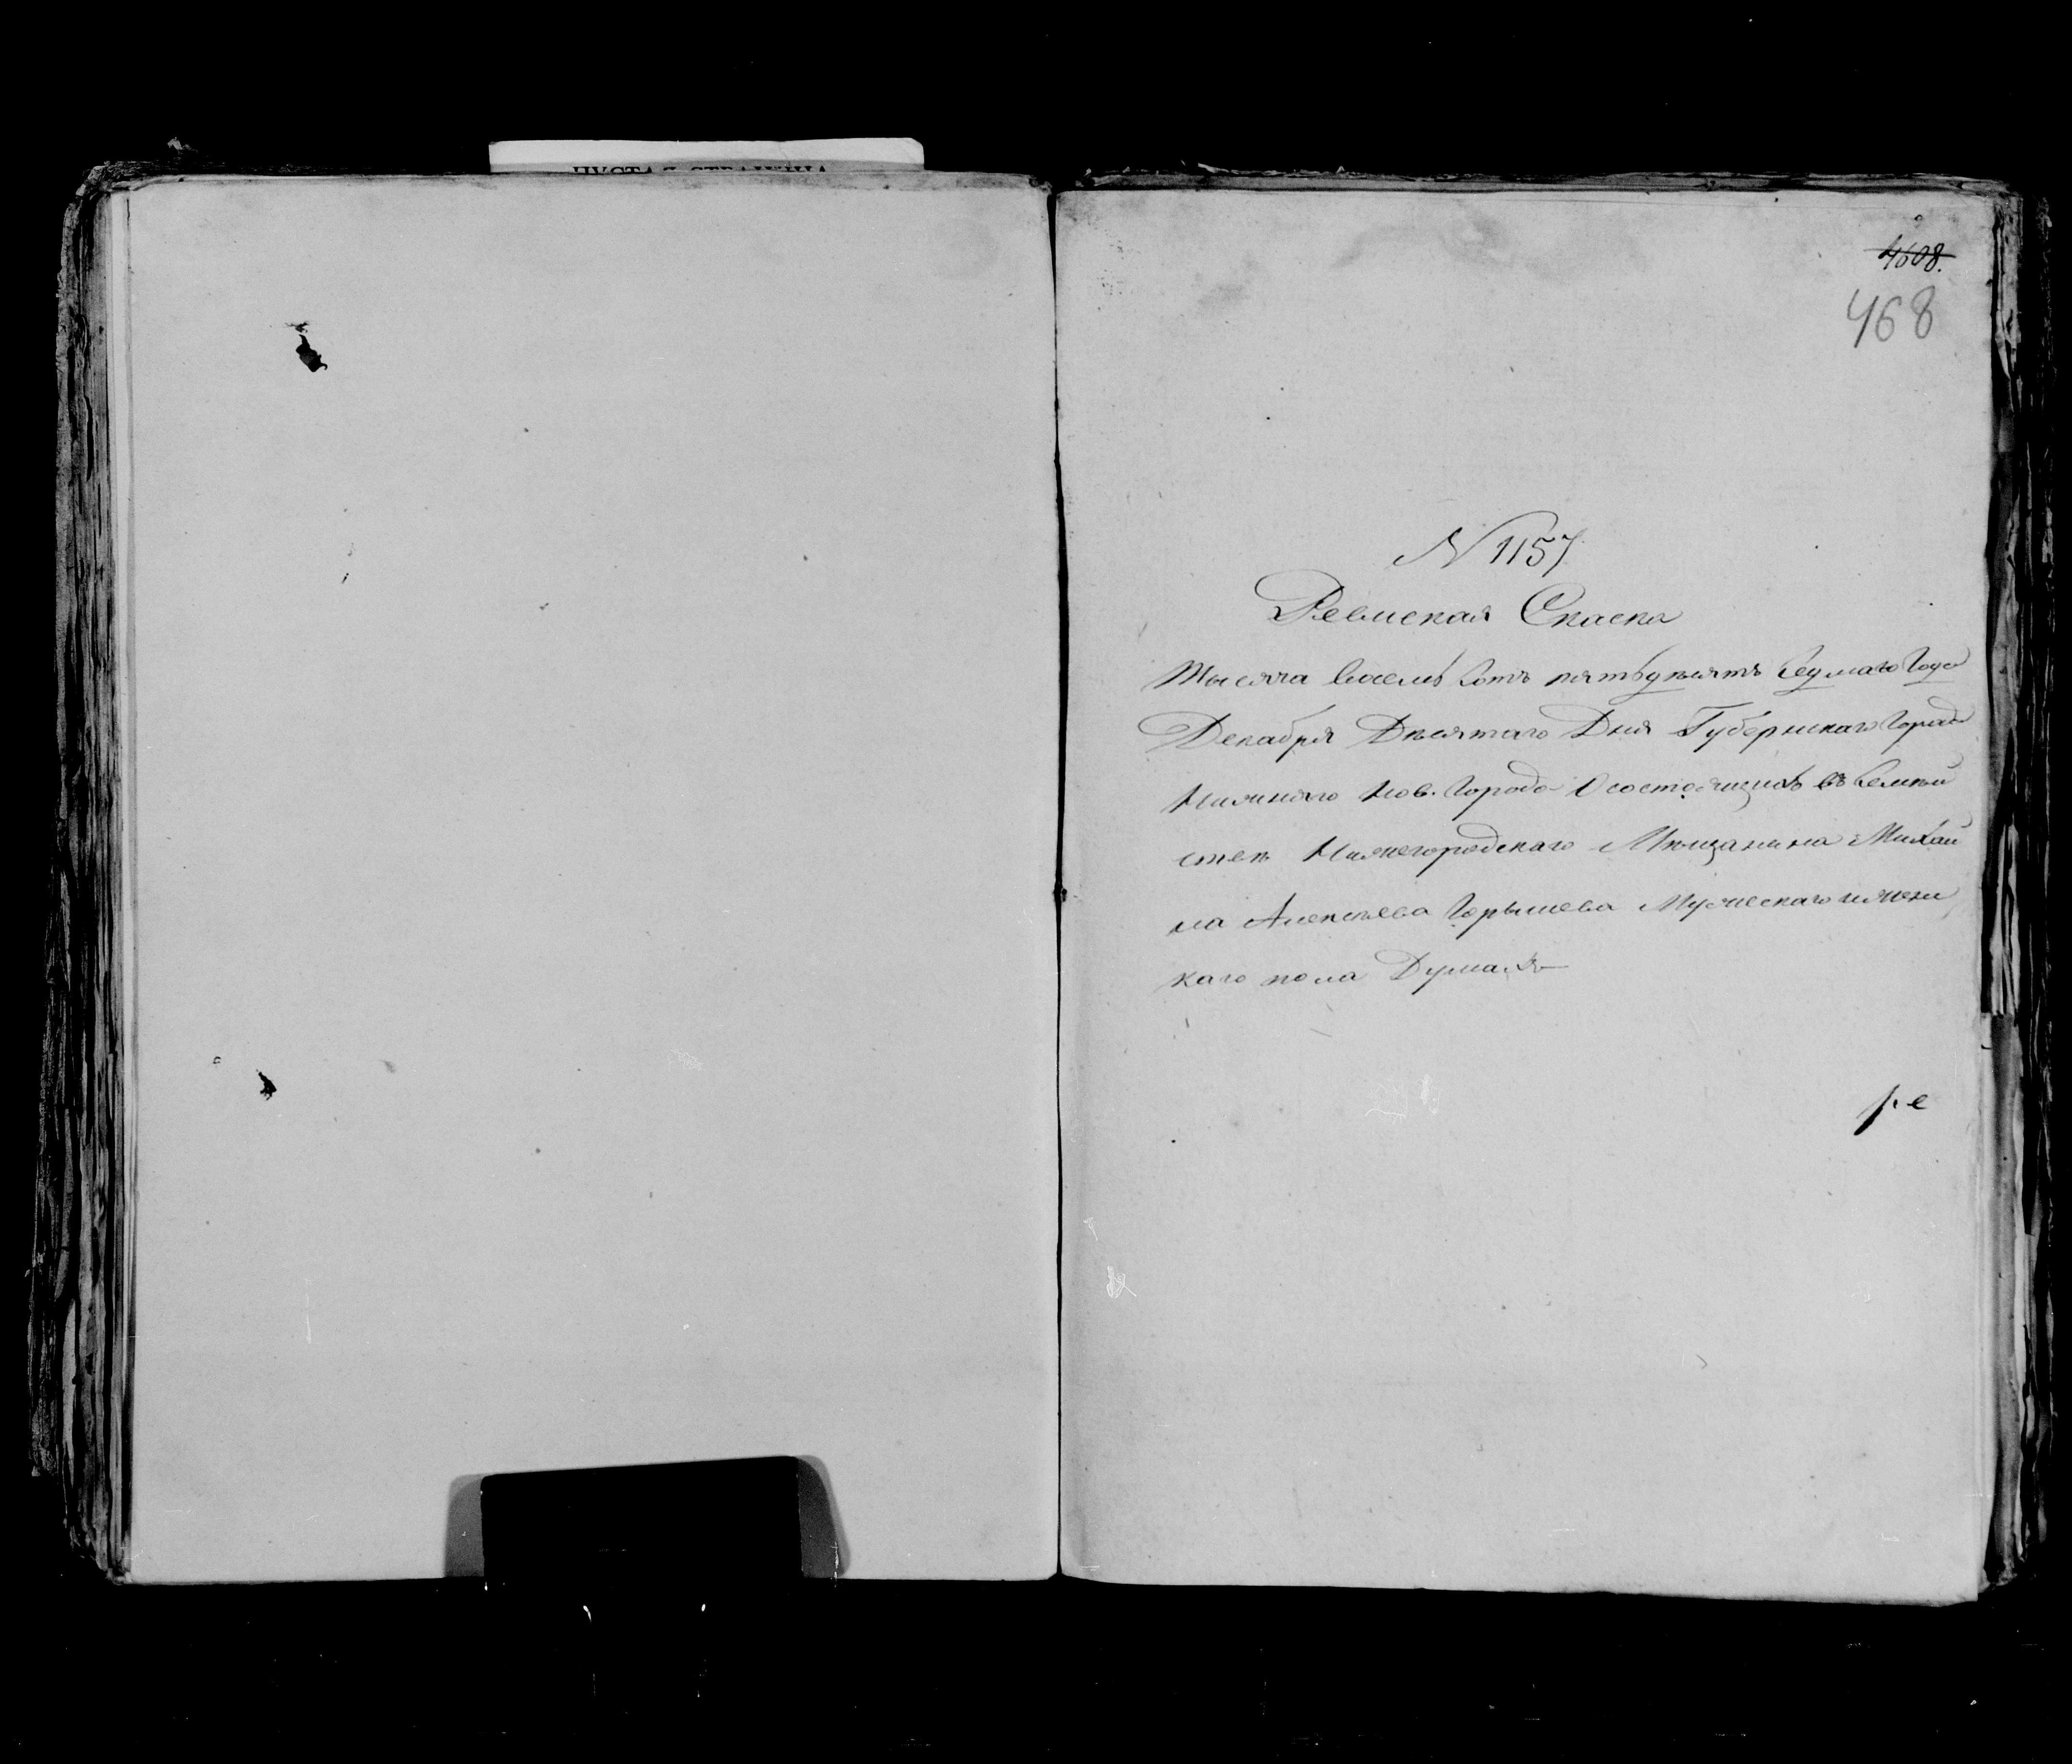 4608.
468
N 1157
Ревиская Скаска
Тысяча восемь сотъ пятьдѣсятъ седмаго года
Декабря Дѣсятаго Дня Губернскаго города
Нижняго Нов. города О состоящихъ въ семѣй
ствѣ Нижегородскаго Мѣщанина Михаи
ла Алексѣева Мужескаго и женс
каго пола Душахъ